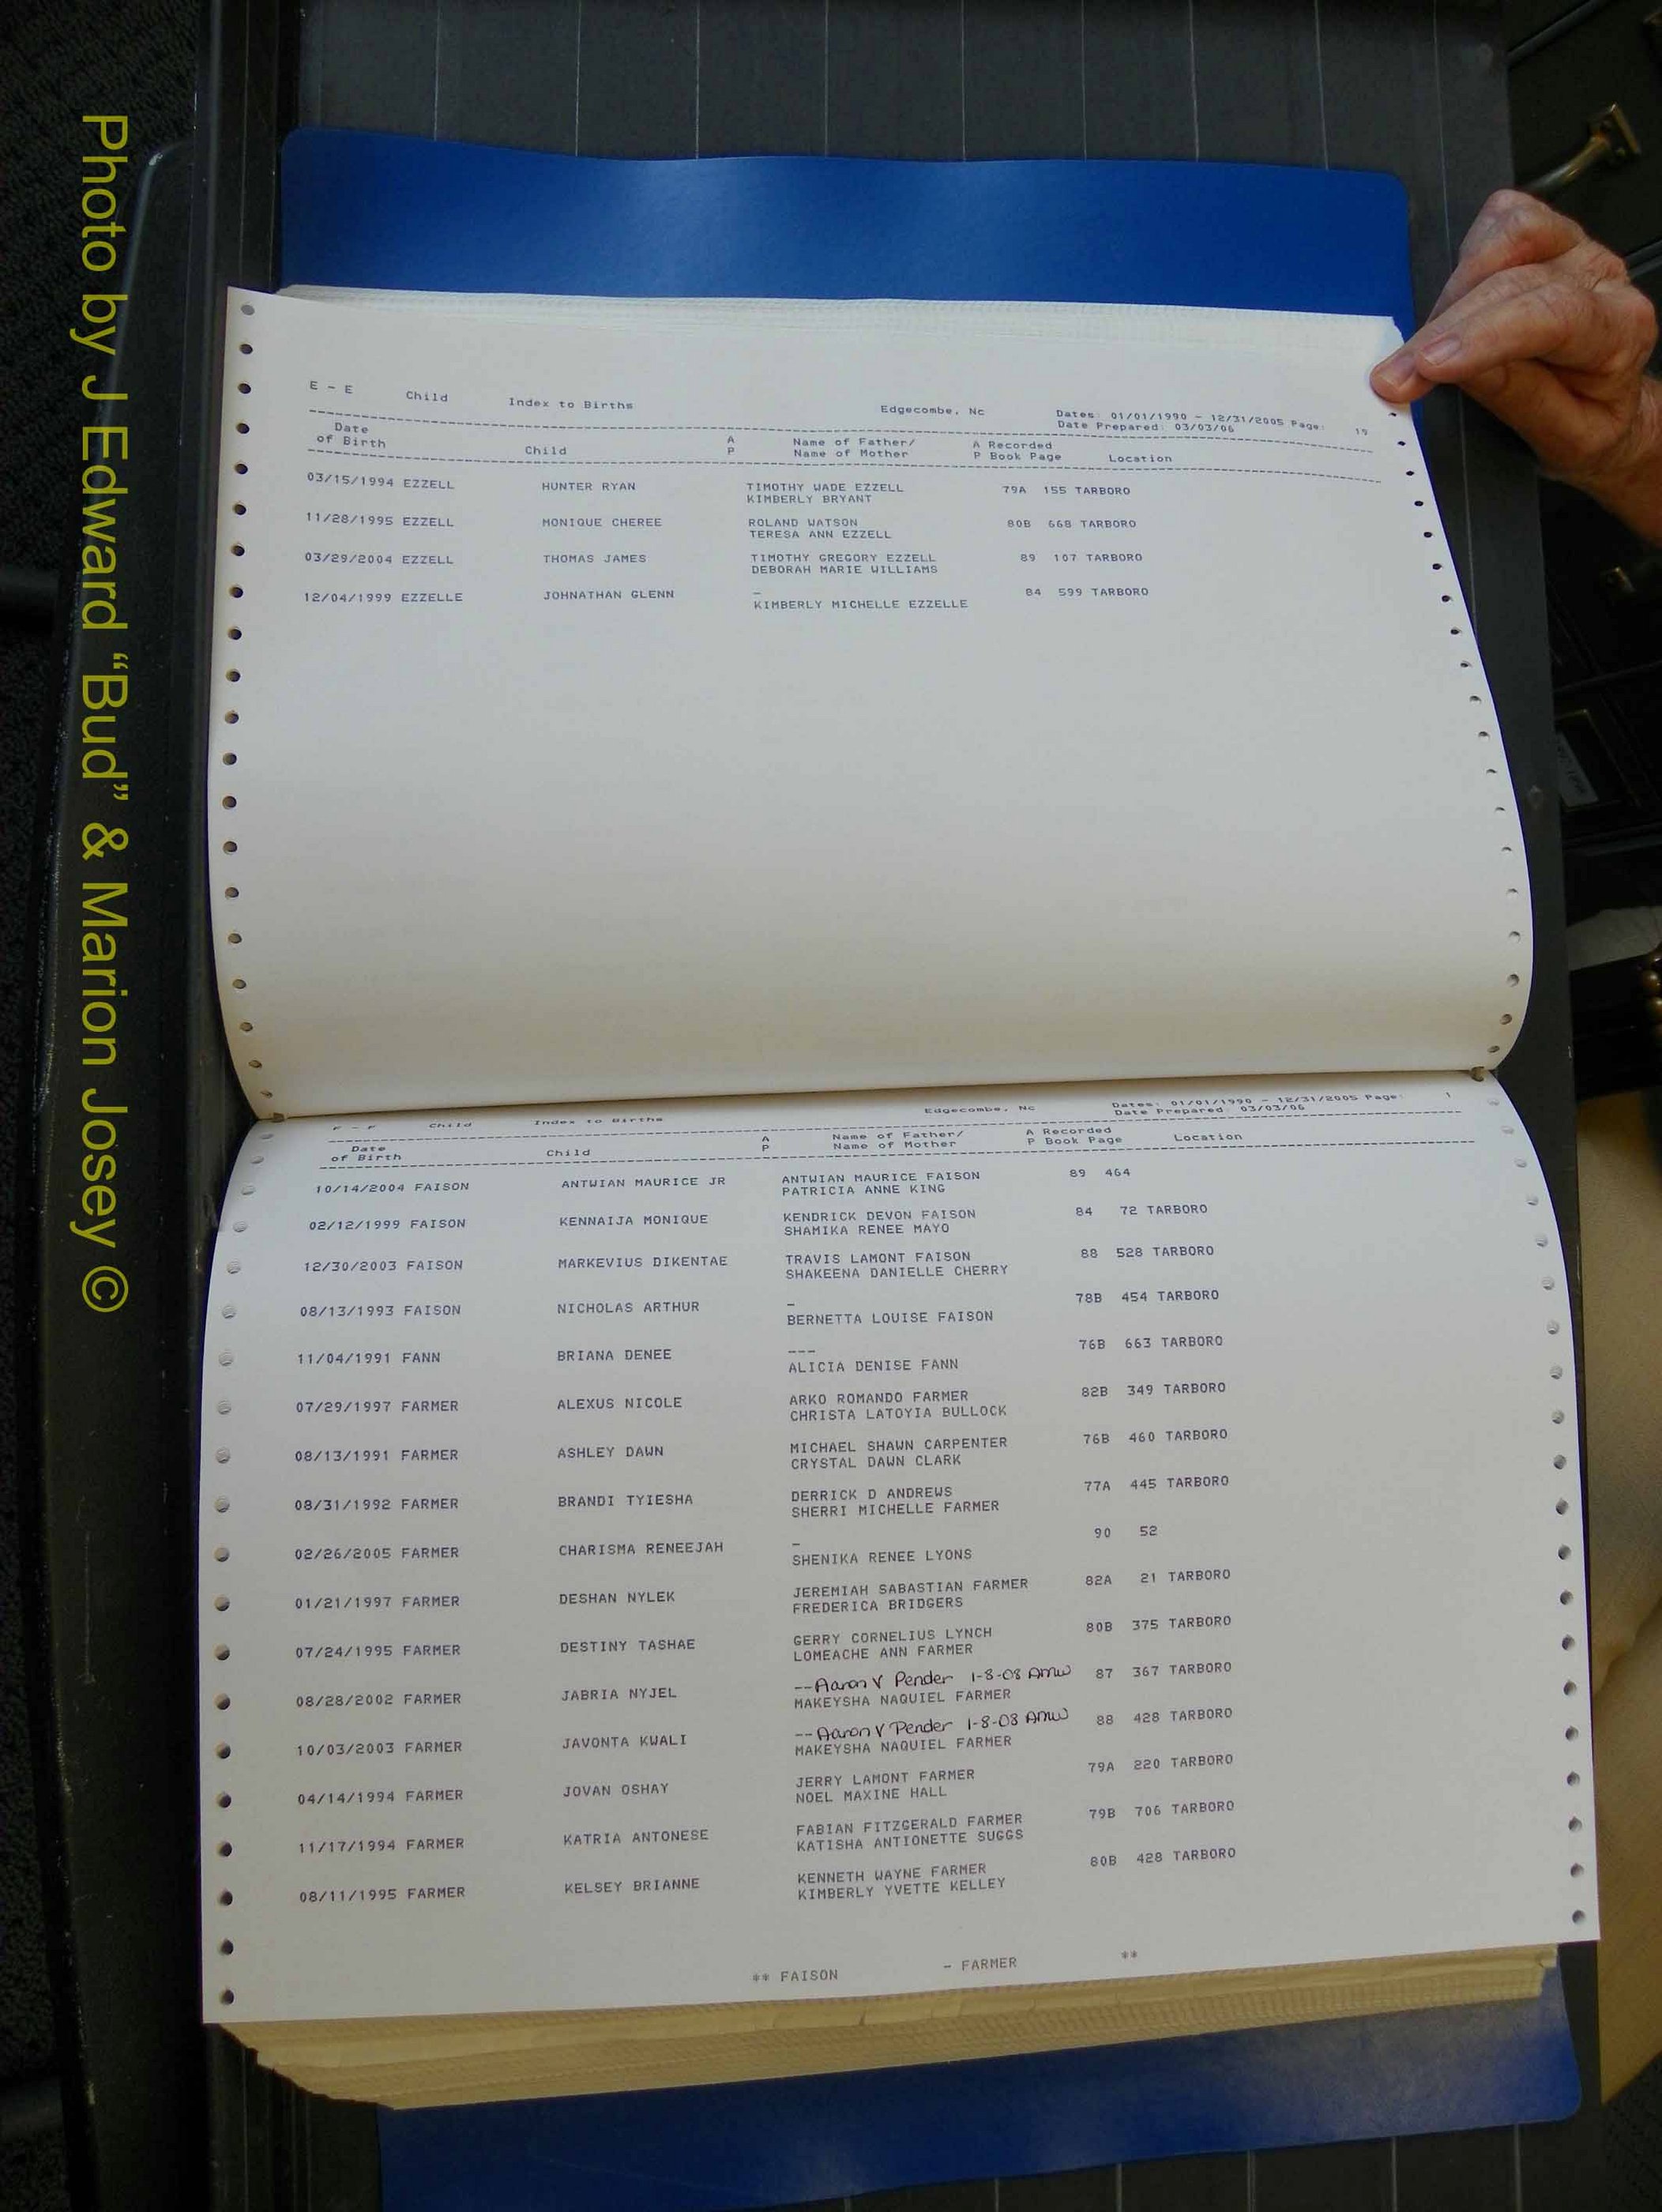 E - E Child Index to Births Edgecombe, Nc Dates: 01/01/1990 - 12/31/2005 Page: 19
Date Prepared: 03/03/06
Date of Birth Child A P Name of Father/ Name of Mother A P Recorded Book Page Location
03/15/1994 EZZELL HUNTER RYAN TIMOTHY WADE EZZELL 79A 155 TARBORO
KIMBERLY BRYANT
11/28/1995 EZZELL MONIQUE CHEREE ROLAND WATSON 80B 668 TARBORO
TERESA ANN EZZELL
03/29/2004 EZZELL THOMAS JAMES TIMOTHY GREGORY EZZELL 89 107 TARBORO
DEBORAH MARIE WILLIAMS
12/04/1999 EZZELLE JOHNATHAN GLENN - 84 599 TARBORO
KIMBERLY MICHELLE EZZELLE
F - F Child Index to Births Edgecombe, Nc Dates: 01/01/1990 - 12/31/2005 Page: 1
Date Prepared: 03/03/06
Date of Birth Child A P Name of Father/ Name of Mother A P Recorded Book Page Location
10/14/2004 FAISON ANTWIAN MAURICE JR ANTWIAN MAURICE FAISON 89 464
PATRICIA ANNE KING
02/12/1999 FAISON KENNAIJA MONIQUE KENDRICK DEVON FAISON 84 72 TARBORO
SHAMIKA RENEE MAYO
12/30/2003 FAISON MARKEVIUS DIKENTAE TRAVIS LAMONT FAISON 88 528 TARBORO
SHAKEENA DANIELLE CHERRY
08/13/1993 FAISON NICHOLAS ARTHUR - 78B 454 TARBORO
BERNETTA LOUISE FAISON
11/04/1991 FANN BRIANA DENEE --- 76B 663 TARBORO
ALICIA DENISE FANN
07/29/1997 FARMER ALEXUS NICOLE ARKO ROMANDO FARMER 82B 349 TARBORO
CHRISTA LATOYIA BULLOCK
08/13/1991 FARMER ASHLEY DAWN MICHAEL SHAWN CARPENTER 76B 460 TARBORO
CRYSTAL DAWN CLARK
08/31/1992 FARMER BRANDI TYIESHA DERRICK D ANDREWS 77A 445 TARBORO
SHERRI MICHELLE FARMER
02/26/2005 FARMER CHARISMA RENEEJAH - 90 52
SHENIKA RENEE LYONS
01/21/1997 FARMER DESHAN NYLEK JEREMIAH SABASTIAN FARMER 82A 21 TARBORO
FREDERICA BRIDGERS
07/24/1995 FARMER DESTINY TASHAE GERRY CORNELIUS LYNCH 80B 375 TARBORO
LOMEACHE ANN FARMER
08/28/2002 FARMER JABRIA NYJEL --Aaron V Pender 1-8-08 AMW 87 367 TARBORO
MAKEYSHA NAQUIEL FARMER
10/03/2003 FARMER JAVONTA KWALI --Aaron V Pender 1-8-08 AMW 88 428 TARBORO
MAKEYSHA NAQUIEL FARMER
04/14/1994 FARMER JOVAN OSHAY JERRY LAMONT FARMER 79A 220 TARBORO
NOEL MAXINE HALL
11/17/1994 FARMER KATRIA ANTONESE FABIAN FITZGERALD FARMER 79B 706 TARBORO
KATISHA ANTIONETTE SUGGS
08/11/1995 FARMER KELSEY BRIANNE KENNETH WAYNE FARMER 80B 428 TARBORO
KIMBERLY YVETTE KELLEY
** FAISON - FARMER **
Photo by J Edward “Bud” & Marion Josey ©